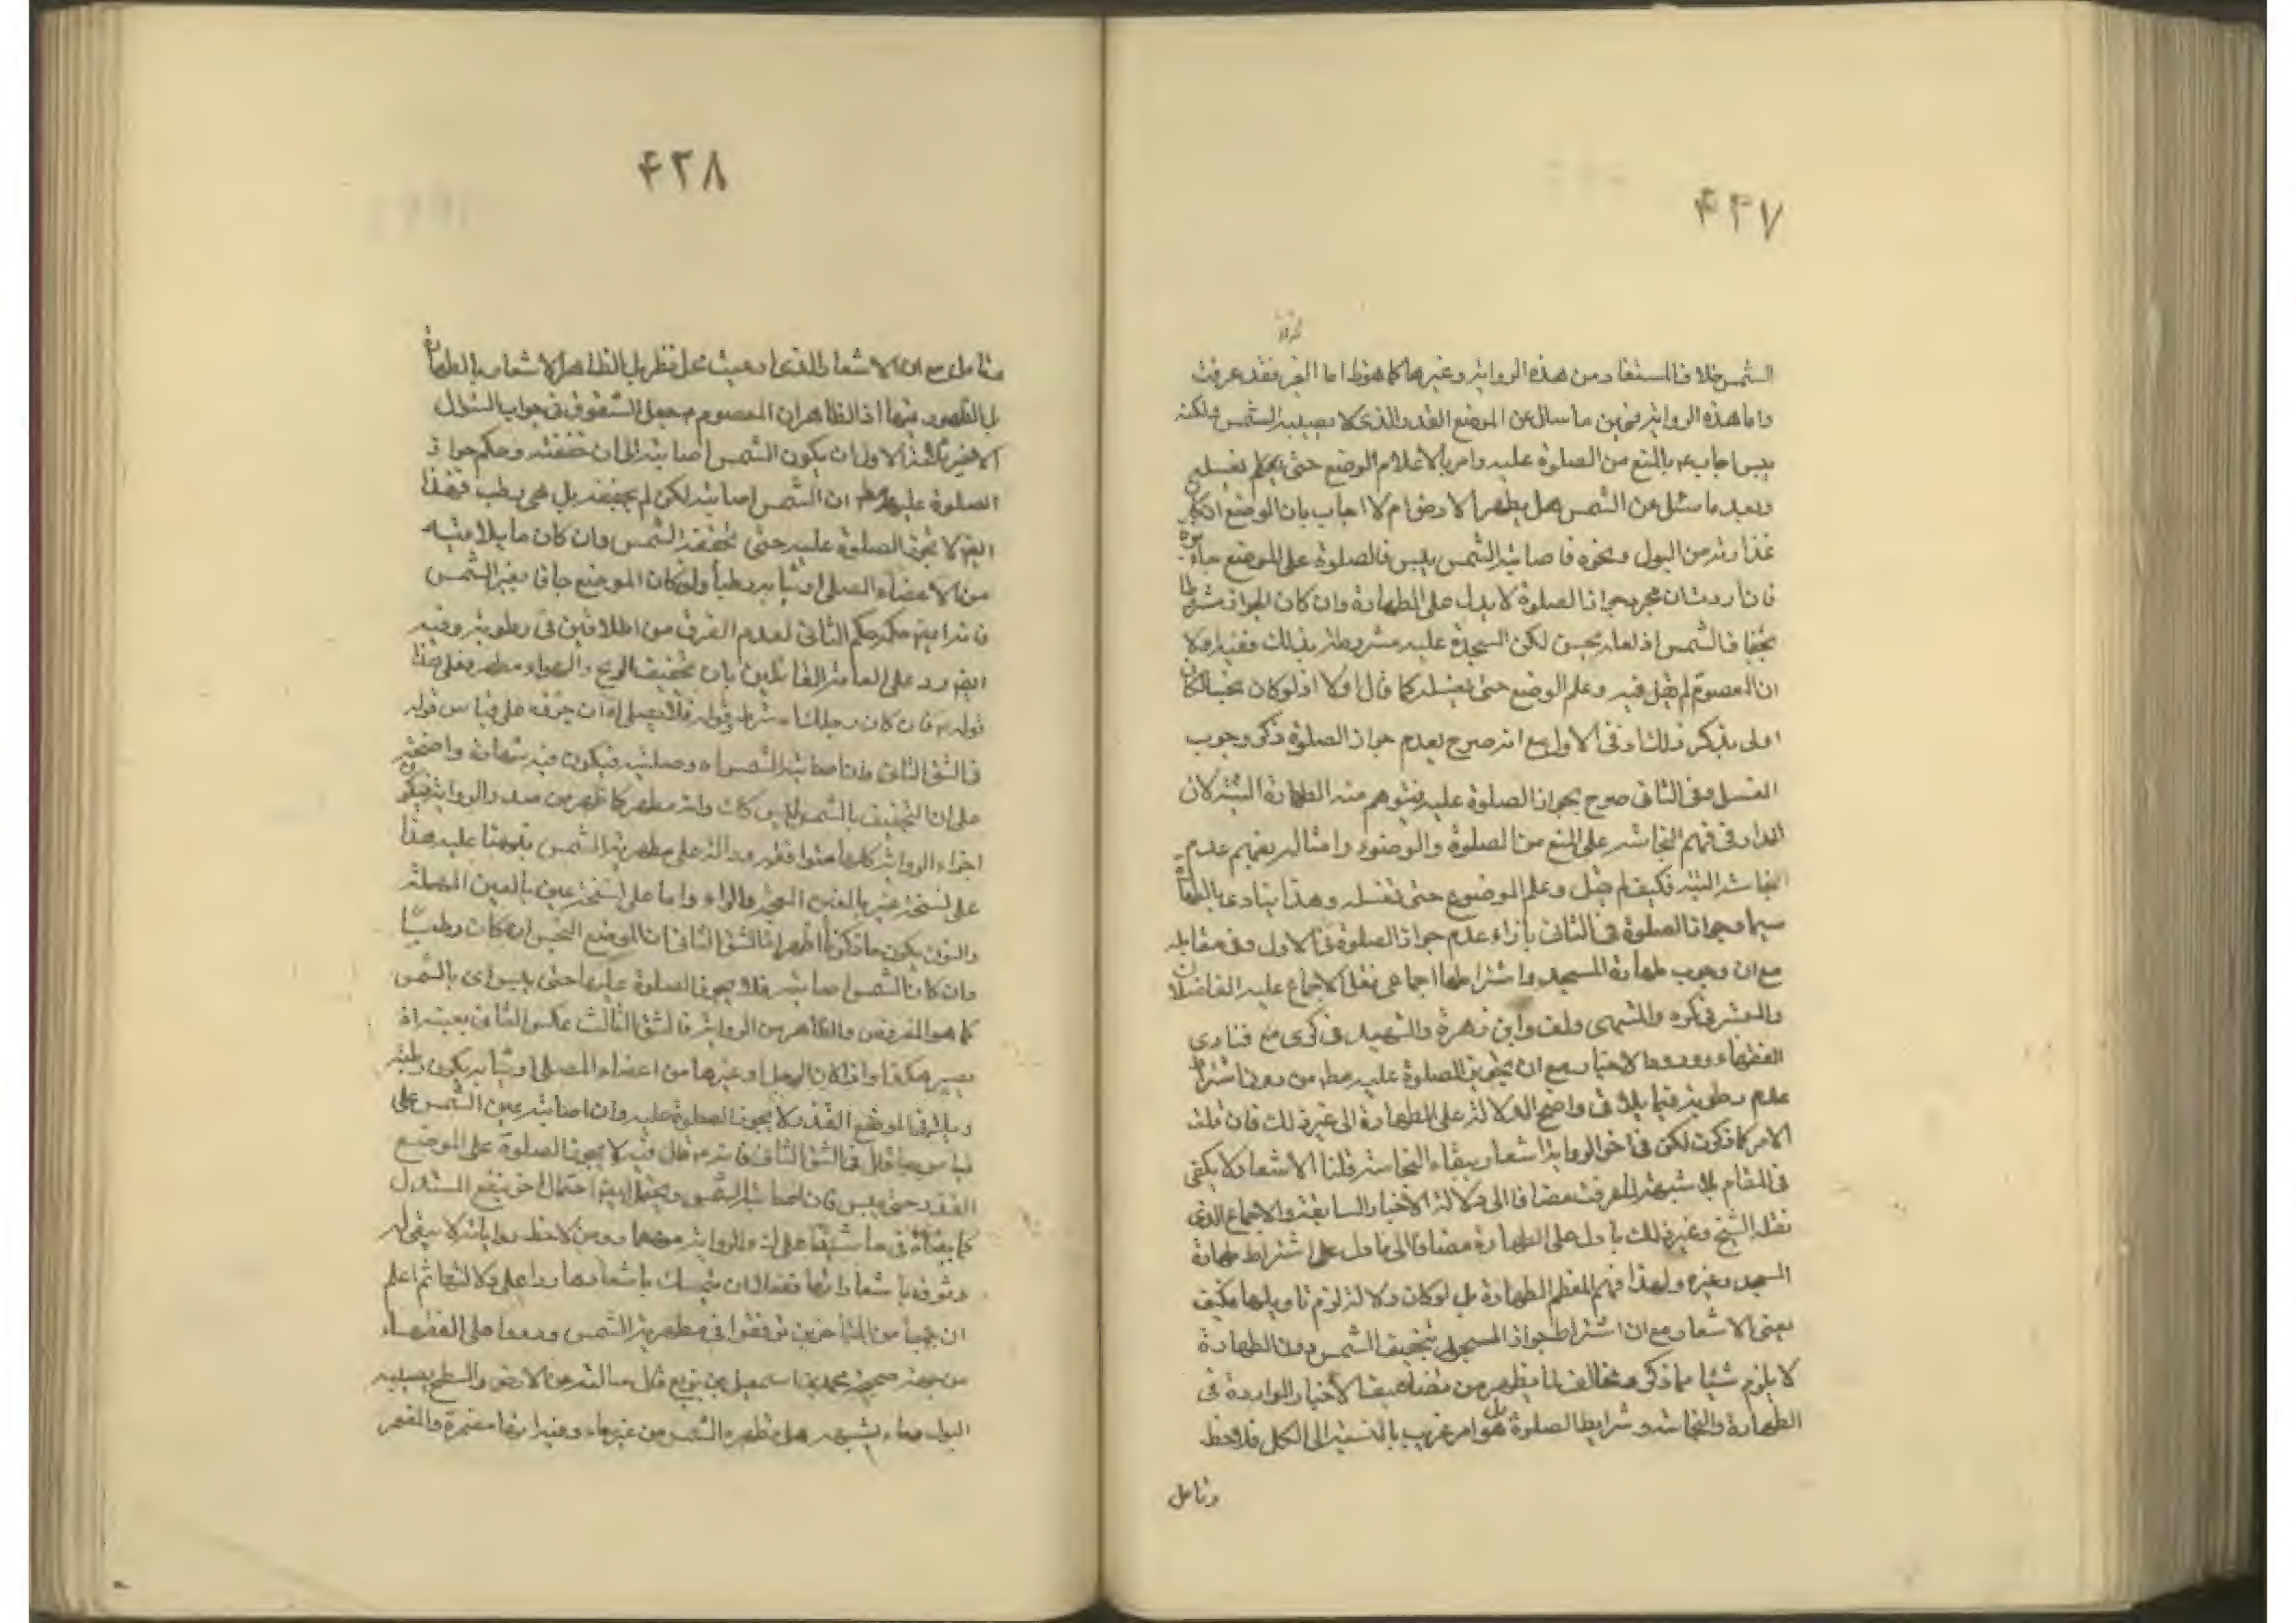 ۴۲۷
الشمس خلاف المستفاد من هذه الرواية وغيرها كما هو ظ اما الغير فقد عرفت
واما هذه الرواية فمن ما سال عن الموضع القذر والذى لا يصيبه الشمس ولكنه
يبس اجاب ع بالمنع من الصلوة عليه وامر بالاعلام الوضع حتى يغسله
وبعد ما سئل عن الشمس هل يطهر الارض ام لا اجاب بان الموضع اذا كان
قذارته من البول ونحوه فاصابته الشمس يبس فالصلوة على الموضع جائزة
فان اردت ان مجرد جواز الصلوة لا يدل على الطهارة وان كان الجواز مشروطا
بجفاف الشمس اذ لعله يحسن لكن السجدة عليه مشروطة بذلك ففيه اولا
ان المعصوم لم يقل فيه وعلم الوضع حتى يغسله كما قال اولا اذ لو كان نجسا لكان
اولى بذكر ذلك اذ فى الاول مع انه صرح بعدم جواز الصلوة ذكر وجوب
الغسل وفى الثانى صرح بجواز الصلوة عليه فيتوهم منه الطهارة البتة لان
المدار فى فهم النجاسة على المنع من الصلوة والوضوء وامثاله يفهم عدم
النجاسة البتة فكيف لم يقل وعلم الموضوع حتى تغسله وهذا ينادى بالطهارة
سيما وجواز الصلوة فى الثانى بازاء عدم جواز الصلوة فى الاول وفى مقابله
مع ان وجوب طهارة المسجد واشتراطها اجماعى نقل الاجماع عليه الفاضلان
والمعتبر فى كره والمنتهى ولف وابن زهرة والشهيد فى كرى مع فتاوى
الفقهاء وورود الاخبار مع ان تجويز الصلوة عليه مط من دون اشتراط
عدم رطوبة فيما يلاقى واضح الدلالة على الطهارة الى غير ذلك فان قلت
الامر كما ذكرت لكن فى اخر الرواية اشعار ببقاء النجاسة قلنا الاشعار لا يكفى
فى المقام بلا شبهة لما عرفت مضافا الى دلالة الاخبار السابقة والاجماع الذى
نقله الشيخ وغير ذلك مما دل على الطهارة مضافا الى ما دل على اشتراط طهارة
المسجد وغيره ولهذا فهم المعظم الطهارة بل لو كان دلالة لزم تاويلها فكيف
يعنى الاشعار مع ان اشتراط جواز المسجود بتجفيف الشمس دون الطهارة
لا يلزم شيئا مما ذكر ومخالف لما يظهر من تضاعيف الاخبار الواردة فى
الطهارة والنجاسة وشرايط الصلوة بل هو امر غريب بالنسبة الى الكل فلاحظ
وتامل
۴۲۸
فتامل مع ان الاشعار الذى ادعيت محل نظر بل الظاهر الاشعار بالطهارة
بل الظهور فيها اذ الظاهر ان المعصوم ع جعل الشقوق فى جواب السؤال
الاخير ثلثة الاول ان يكون الشمس اصابته الى ان جففته وحكم جواز
الصلوة عليه مط ان الشمس اصابته لكن لم يجففه بل هى رطب فهذا
ايضا لا تجوز الصلوة عليه حتى تجففه الشمس وان كان ما يلاقيه
من الاعضاء المصلى او ثيابه رطبا ولو كان الموضع جافا بغير الشمس
فانه ايضا حكمه حكم الثانى لعدم الفرق من الملاقين فى رطوبة وفيه
ايضا رد على العامة القائلين بان تجفيف الريح والهواء مطهر فعلى هذا
قوله ع فان كان رجلك اه شرط وقوله فلا تصل اه ان جزءه على قياس قوله
فى الشق الثانى وان اصابته الشمس اه وصلته فيكون فيه شهادة واضحة
على ان التجفيف بالشمس وانه مطهر كما ظهر من صدر الرواية فيكون
اجزاء الرواية كلها متوافقة ودالة على مطهرية الشمس بقلوهنا عليه هذا
على نسخة غير بالغين المعجمة والراء واما على نسخة عين بالعين المهملة
والنون يكون ما ذكرنا اظهر اذ الشق الثانى ان الموضع النجس اذا كان رطبا
وان كان الشمس اصابته فلا يجوز الصلوة عليها حتى ييبس اى بالشمس
كما هو المفروض والظاهر من الرواية فالشق الثالث عكس الثانى بعينه اذ
يصير هكذا واذا كان الرجل او غيرها من اعضاء المصلى او ثيابه يكون رطبه
ويلاقى الموضع القذر لا يجوز الصلوة عليه وان اصابته عين الشمس على
قياس ما قال فى الشق الثانى فانه قال فيه لا يجوز الصلوة على الموضع
القذر حتى ييبس فان اصابته الشمس ويحتمل ايضا احتمال اخر ينفع المستدل
كما بيناه فى حاشيتنا على الرواية ومن لاحظ رواياته لا يبقى له
وثوق باشعاراتها فضلا ان يتمسك باشعارها رداعلى دلالتها ثم اعلم
ان جمعا من المتاخرين توقفوا فى مطهرية الشمس وردوا على الفقهاء
من جهة صحيحة محمد بن اسمعيل بن بزيع قال سالته عن الارض والسطح يصيبه
البول وما يشبهه هل تطهره الشمس من غير ماء وفيه انها مضمرة والمضمر